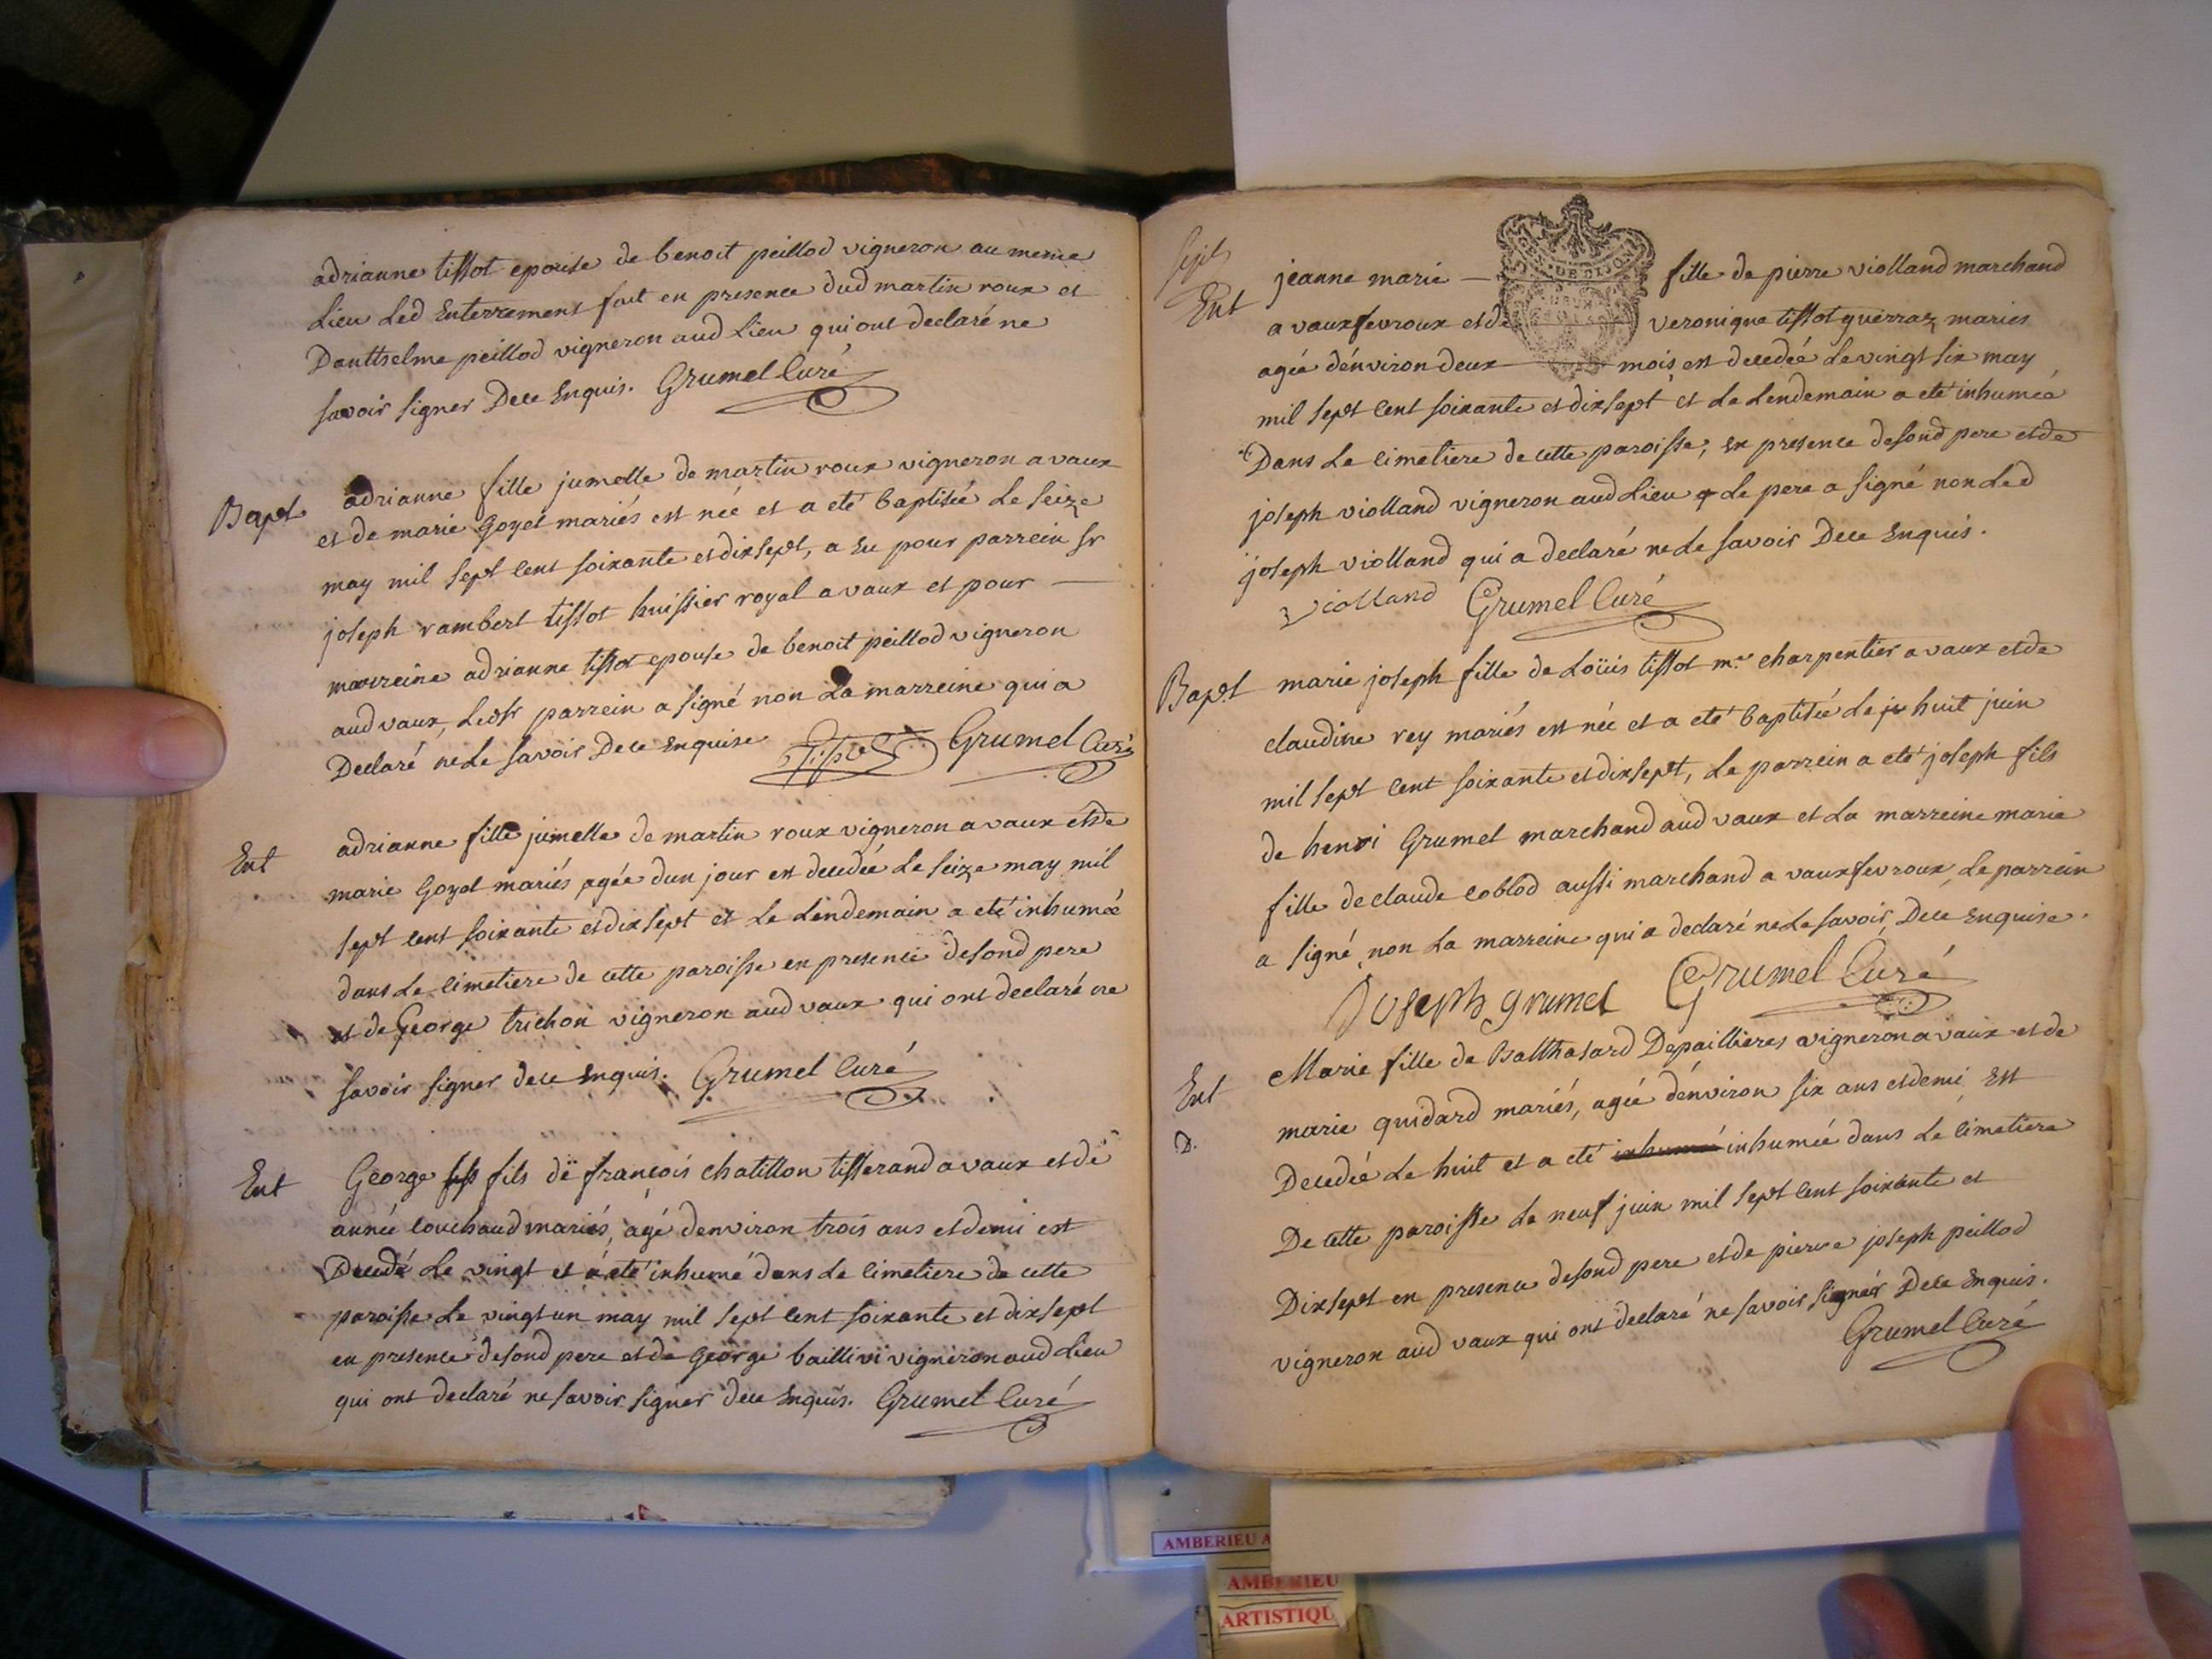 adrianne tissot epouse de benoit peillod vigneron au meme
Lieu Led Enterrement fait en presence dud martin roux et
Danthelme peillod vigneron aud Lieu qui ont declaré ne
savoir signer Dece Enquis. Grumel Curé
Bapt adrianne fille jumelle de martin roux vigneron a vaux
et de marie Goyet mariés est née et a eté baptisée Le seize
may mil sept cent soixante et dixsept, a Eu pour parrein sr
joseph rambert tissot huissier royal a vaux et pour
marreine adrianne tissot epouse de benoit peillod vigneron
aud vaux, Ledsr parrein a signé non La marreine qui a
Declaré ne Le savoir Dece Enquise Tissot Grumel Curé
Ent adrianne fille jumelle de martin roux vigneron a vaux et de
marie Goyet mariés agée dun jour est decedée Le seize may mil
sept cent soixante et dix sept et Le Lendemain a eté inhumée
dans Le cimetiere de cette paroisse en presence de sond pere
et de George trichon vigneron aud vaux qui ont declaré ne
savoir signer dece Enquis. Grumel Curé
Ent George fils de françois chatillon tisserand a vaux et de
année couchaud mariés, agé denviron trois ans et demi est
Decedé Le vingt et a eté inhumé dans Le cimetiere de cette
paroisse Le vingt un may mil sept cent soixante et dix sept
en presence de sond pere et de George baillivi vigneron aud Lieu
qui ont declaré ne savoir signer dece Enquis. Grumel Curé
Ent jeanne marie fille de pierre violland marchand
GEN. DE DIJON
a vauxfevroux et de veronique tissot guerraz mariés
agée d'environ deux mois est decedée Le vingt six may
mil sept cent soixante et dixsept et Le Lendemain a eté inhumée
Dans Le cimetiere de cette paroisse, en presence de sond pere et de
joseph violland vigneron aud Lieu Le pere a signé non Led
joseph violland qui a declaré ne Le savoir Dece Enquis.
violland Grumel Curé
Bapt marie joseph fille de Loüis tissot mre charpentier a vaux et de
claudine rey mariés est née et a eté baptisée Le huit juin
mil sept cent soixante et dixsept, Le parrein a eté joseph fils
de henri Grumel marchand aud vaux et La marreine marie
fille de claude coblod aussi marchand a vauxfevroux, Le parrein
a signé non La marreine qui a declaré ne Le savoir, Dece Enquise.
Joseph grumel Grumel Curé
Ent Marie fille de Balthasard Depaillieres vigneron a vaux et de
marie guidard mariés, agée d'environ six ans et demi Est
D.
Decedée Le huit et a eté inhumé inhumée dans Le cimetiere
De cette paroisse Le neuf juin mil sept cent soixante et
Dixsept en presence de sond pere et de pierre joseph peillod
vigneron aud vaux qui ont declaré ne savoir signer Dece Enquis.
Grumel Curé
AMBERIEU A
AMBERIEU
ARTISTIQU